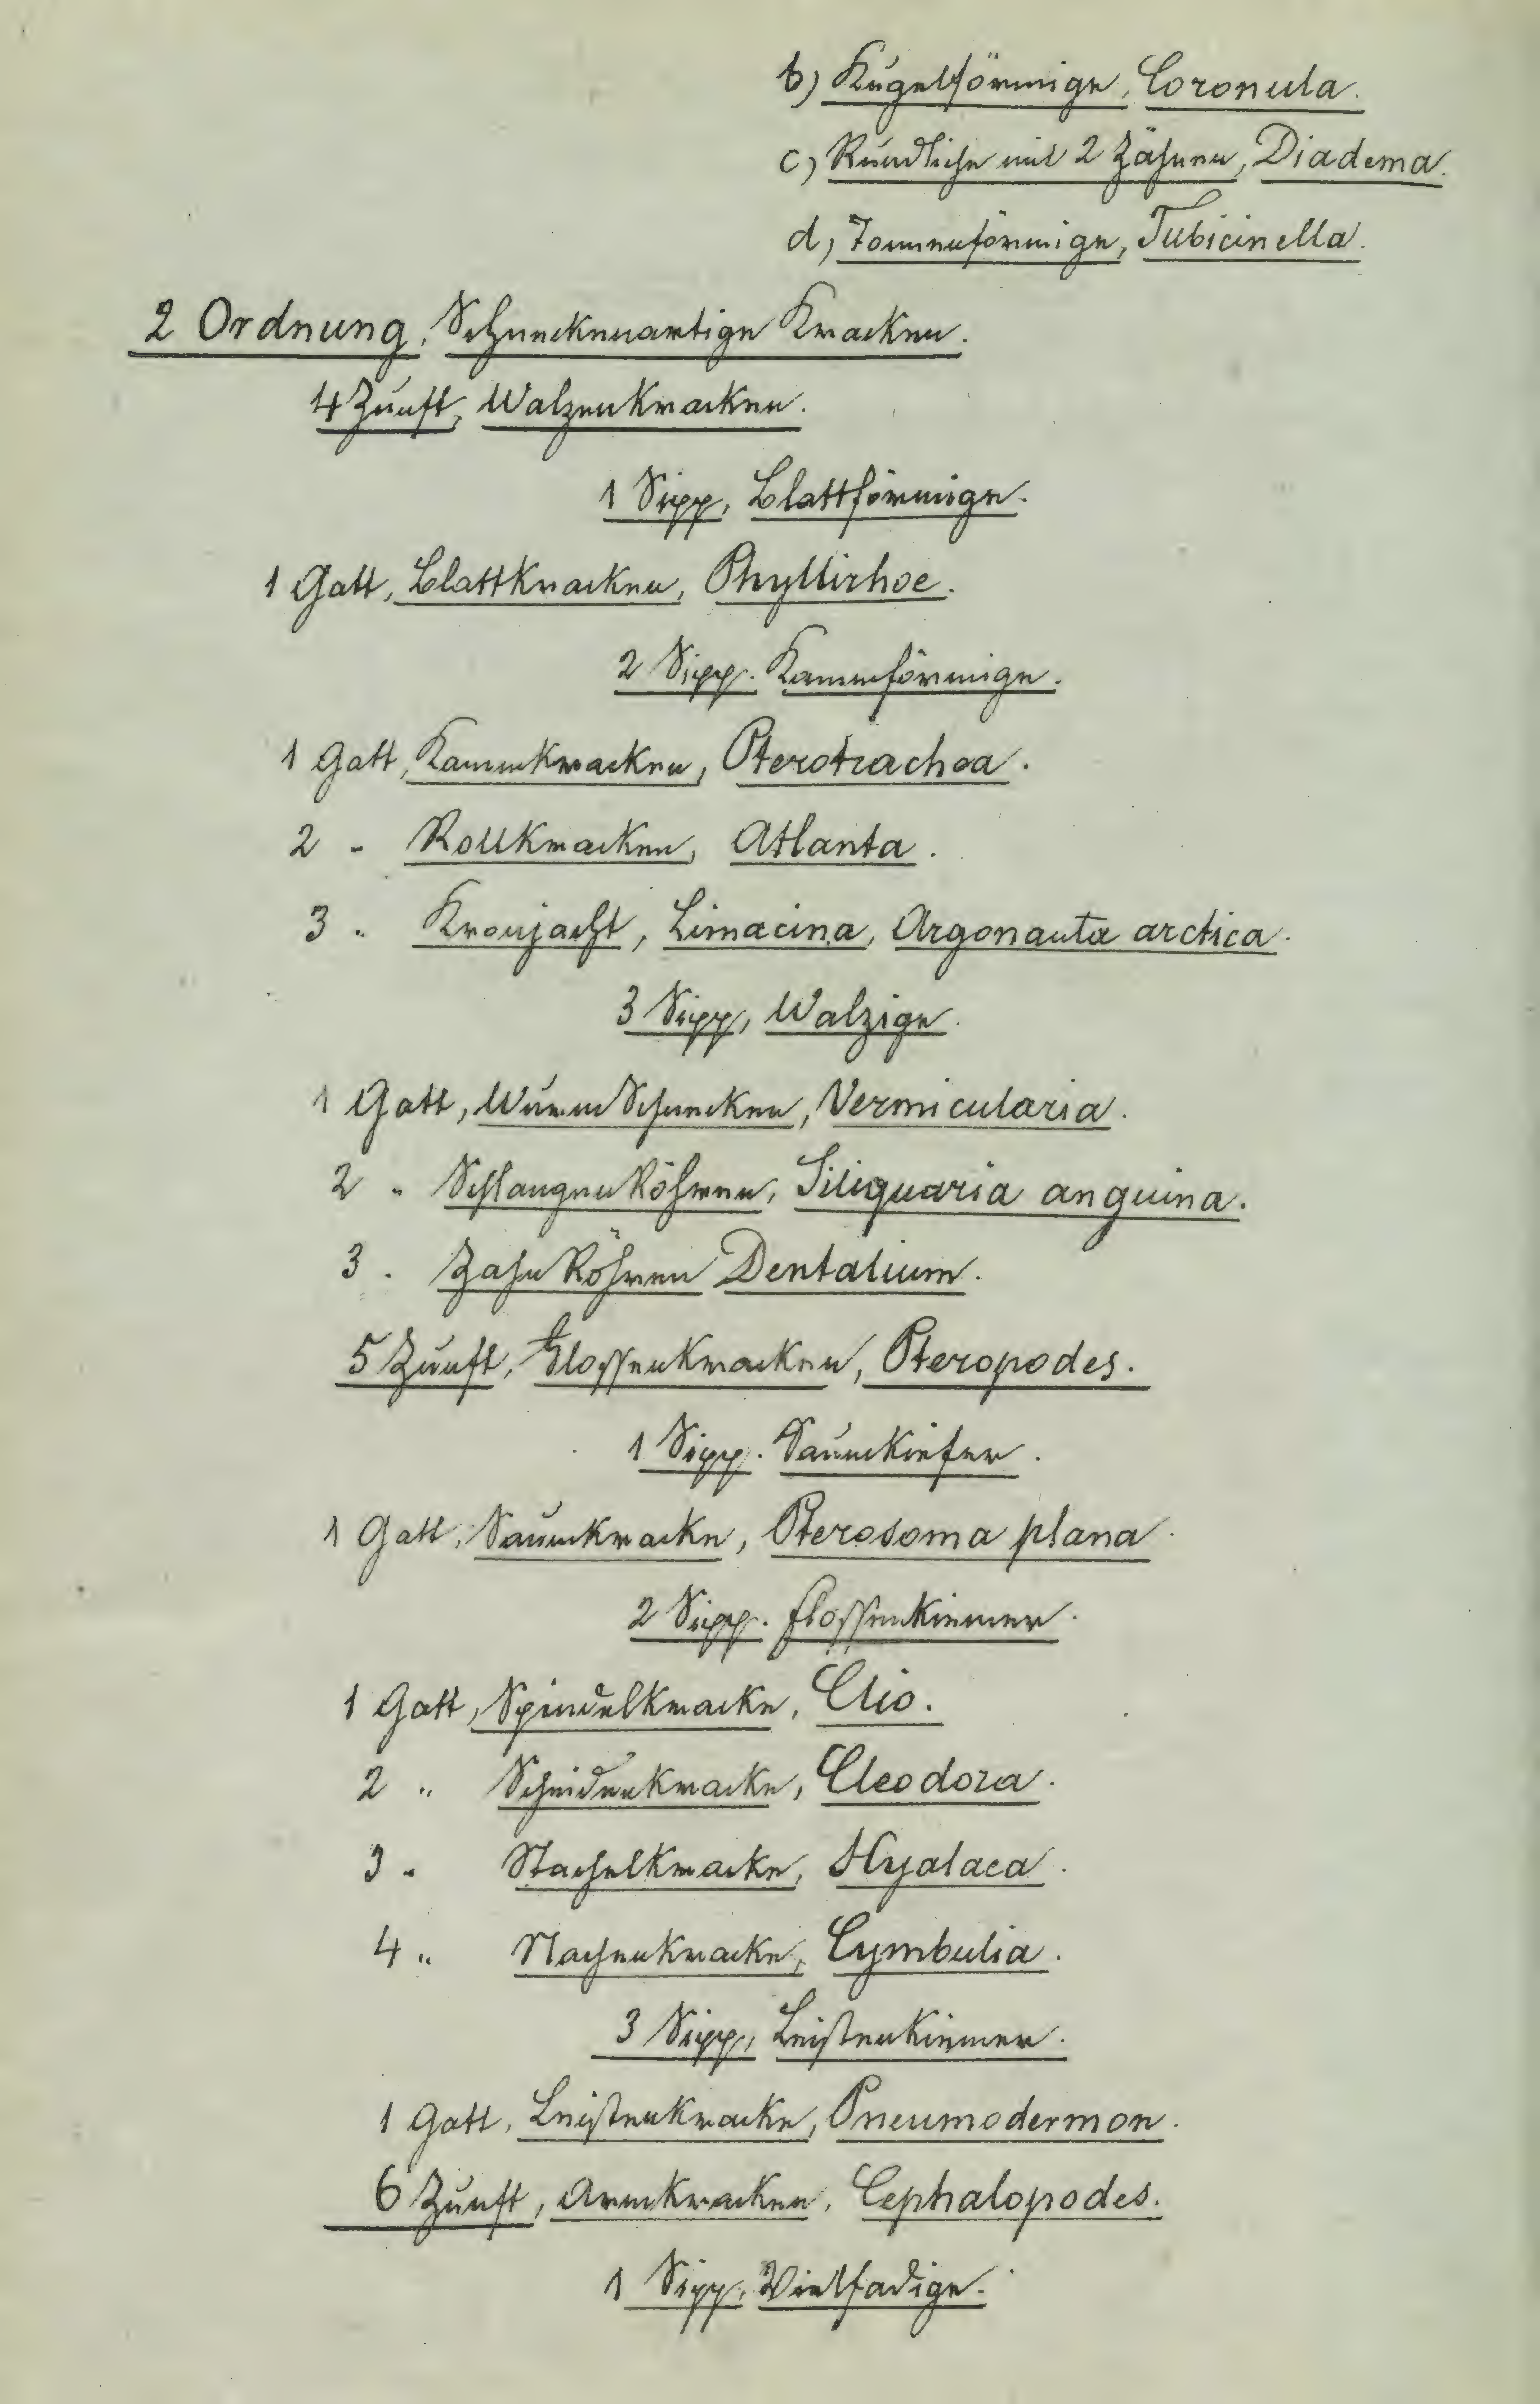 b) Kugelförmige, Coronula.
c) Rundliche mit 2 Zähnen, Diadema.
d, Tonnenförmige, Tubicinella.
2 Ordnung, Schneckenartige Kracken.
4 Zunft, Walzenkracken.
1 Sipp, Blattförmige.
1 Gatt, Blattkracken, Phyllirhoe.
2 Sipp. Kammförmige.
1 Gatt, Kammkracken, Pterotrachea.
2 " Rollkracken, Atlanta.
3 " Kronjacht, Limacina, Argonauta arctica.
3 Sipp, Walzige.
1 Gatt, Wurm Schnecken, Vermicularia.
2 " Schlangen Röhren, Siliquaria anguina.
3 " Zahn Röhren Dentalium.
5 Zunft, Flossenkracken, Pteropodes.
1 Sipp. Saumkiefer.
1 Gatt, Saumkracke, Pterosoma plana
2 Sipp. Flossenkiemer.
1 Gatt, Spindelkracke, Clio.
2 " Scheidenkracke, Cleodora.
3 " Stachelkracke, Hyalaea.
4 " Nachenkracke, Cymbulia.
3 Sipp, Leistenkiemer.
1 Gatt, Leistenkracke, Pneumodermon.
6 Zunft, Armkracken, Cephalopodes.
1 Sipp, Vielfadige.